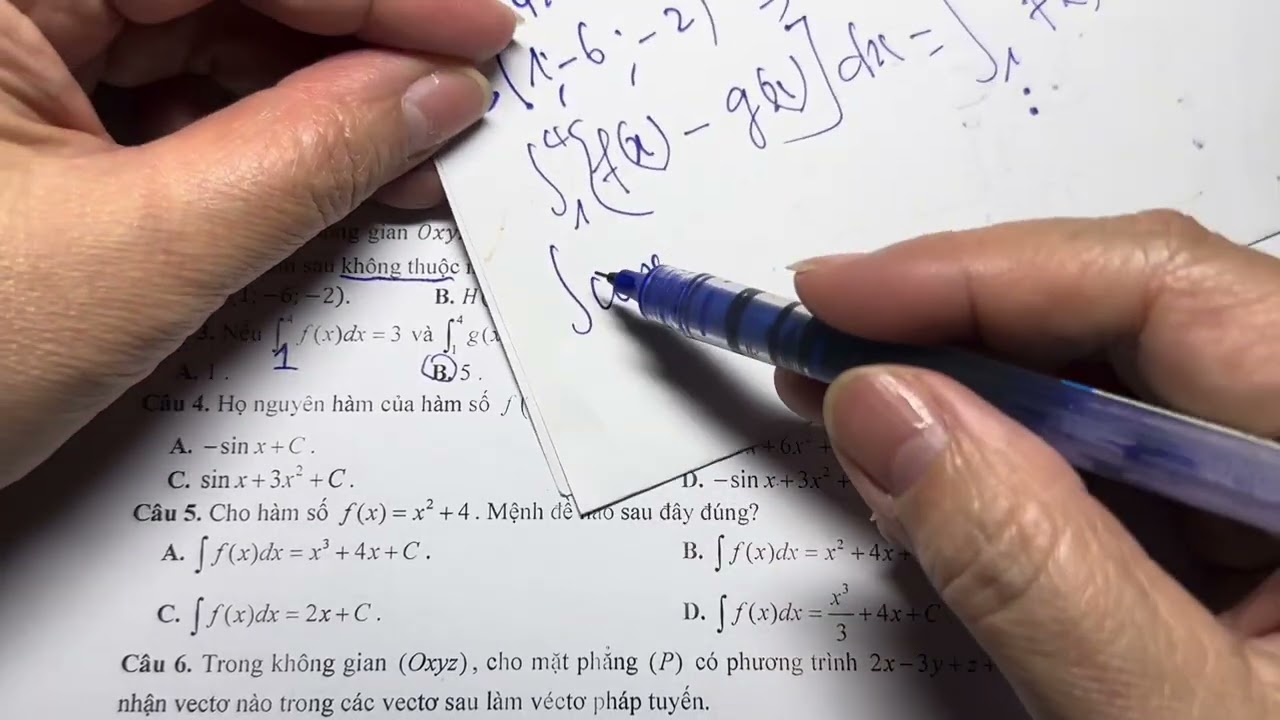 (1; -6; -2)
∫₁⁴ [f(x) - g(x)] dx = ∫₁
∫ cosx
gian Oxy
sau không thuộc
; -6; -2). B. H
3. Nếu ∫₁⁴ f(x)dx = 3 và ∫₁⁴ g(x
A. 1 . B. 5 .
Câu 4. Họ nguyên hàm của hàm số f (
A. -sin x + C . + 6x² +
C. sin x + 3x² + C . D. -sin x + 3x² +
Câu 5. Cho hàm số f(x) = x² + 4 . Mệnh đề nào sau đây đúng?
A. ∫ f(x)dx = x³ + 4x + C . B. ∫ f(x)dx = x² + 4x +
C. ∫ f(x)dx = 2x + C . D. ∫ f(x)dx = x³/3 + 4x + C
Câu 6. Trong không gian (Oxyz), cho mặt phẳng (P) có phương trình 2x - 3y + z +
nhận vectơ nào trong các vectơ sau làm véctơ pháp tuyến.